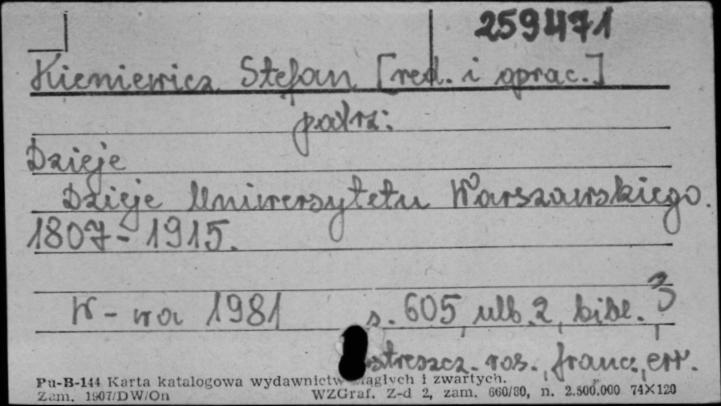 259471
Kieniewicz Stefan [red. i oprac.]
patrz:
Dzieje
Dzieje Uniwersytetu Warszawskiego.
1807-1915.
W-wa 1981 s. 605, ulb. 2, bibl. 3
streszcz. ros., franc., err.
Pu-B-144 Karta katalogowa wydawnictw ciągłych i zwartych.
Zam. 1907/DW/On WZGraf. Z-d 2, zam. 660/80, n. 2.500.000 74X120